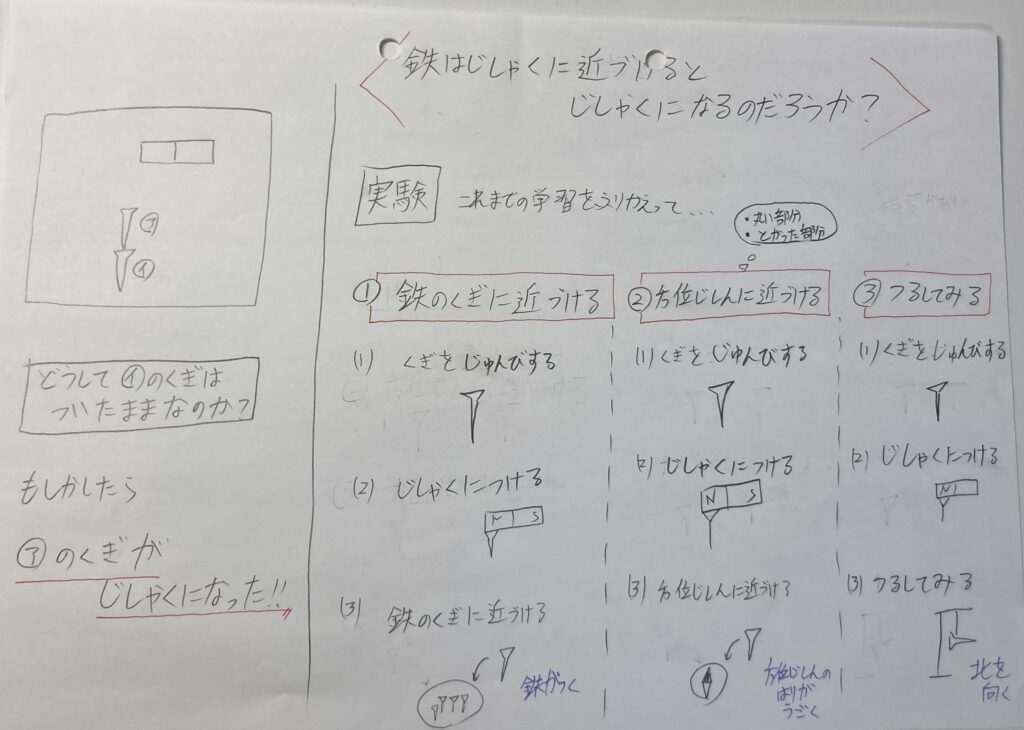 鉄はじしゃくに近づけると
じしゃくになるのだろうか？
㋐
㋑
どうして㋑のくぎは
ついたままなのか？
もしかしたら
㋐のくぎが
じしゃくになった!!
実験
これまでの学習をふりかえって...
・丸い部分
・とがった部分
① 鉄のくぎに近づける
(1) くぎをじゅんびする
(2) じしゃくにつける
N S
(3) 鉄のくぎに近づける
鉄がつく
② 方位じしんに近づける
(1) くぎをじゅんびする
(2) じしゃくにつける
N S
(3) 方位じしんに近づける
方位じしんの
はりが
うごく
③ つるしてみる
(1) くぎをじゅんびする
(2) じしゃくにつける
N
(3) つるしてみる
北を
向く